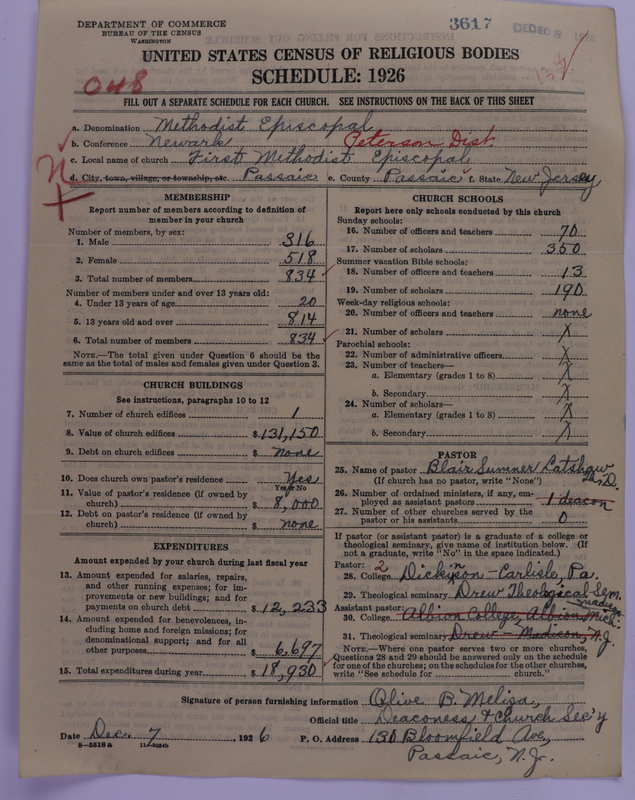 DEPARTMENT OF COMMERCE
BUREAU OF THE CENSUS
WASHINGTON
3617
DEC 9
UNITED STATES CENSUS OF RELIGIOUS BODIES
SCHEDULE: 1926
048
FILL OUT A SEPARATE SCHEDULE FOR EACH CHURCH. SEE INSTRUCTIONS ON THE BACK OF THIS SHEET
a. Denomination Methodist Episcopal
b. Conference Newark Peterson Dist.
c. Local name of church First Methodist Episcopal
d. City, town, village, or township, etc. Passaic e. County Passaic f. State New Jersey
MEMBERSHIP
Report number of members according to definition of
member in your church
Number of members, by sex:
1. Male 316
2. Female 518
3. Total number of members 834
Number of members under and over 13 years old:
4. Under 13 years of age 20
5. 13 years old and over 814
6. Total number of members 834
NOTE.—The total given under Question 6 should be the
same as the total of males and females given under Question 3.
CHURCH BUILDINGS
See instructions, paragraphs 10 to 12
7. Number of church edifices 1
8. Value of church edifices $131,150
9. Debt on church edifices $ none
10. Does church own pastor's residence Yes
Yes or No
11. Value of pastor's residence (if owned by
church) $ 8,000
12. Debt on pastor's residence (if owned by
church) $ none
EXPENDITURES
Amount expended by your church during last fiscal year
13. Amount expended for salaries, repairs,
and other running expenses; for im-
provements or new buildings; and for
payments on church debt $12,233
14. Amount expended for benevolences, in-
cluding home and foreign missions; for
denominational support; and for all
other purposes $ 6,697
15. Total expenditures during year $ 18,930
CHURCH SCHOOLS
Report here only schools conducted by this church
Sunday schools:
16. Number of officers and teachers 70
17. Number of scholars 350
Summer vacation Bible schools:
18. Number of officers and teachers 13
19. Number of scholars 190
Week-day religious schools:
20. Number of officers and teachers none
21. Number of scholars X
Parochial schools:
22. Number of administrative officers X
23. Number of teachers—
a. Elementary (grades 1 to 8) X
b. Secondary X
24. Number of scholars—
a. Elementary (grades 1 to 8) X
b. Secondary X
PASTOR
25. Name of pastor Blair Sumner Latshaw
(If church has no pastor, write "None")
26. Number of ordained ministers, if any, em-
ployed as assistant pastors 1 deacon
27. Number of other churches served by the
pastor or his assistants 0
If pastor (or assistant pastor) is a graduate of a college or
theological seminary, give name of institution below. (If
not a graduate, write "No" in the space indicated.)
Pastor: 2
28. College Dickinson - Carlisle, Pa.
29. Theological seminary Drew Theological Sem.
Madison
Assistant pastor:
30. College Albion College, Albion, Mich.
31. Theological seminary Drew - Madison, N.J.
NOTE.—Where one pastor serves two or more churches,
Questions 28 and 29 should be answered only on the schedule
for one of the churches; on the schedules for the other churches,
write "See schedule for church."
Signature of person furnishing information Olive B. Melisa,
Official title Deaconess & Church Sec'y
Date Dec. 7, 1926 P. O. Address 130 Bloomfield Ave,
Passaic, N.J.
8—5518 a